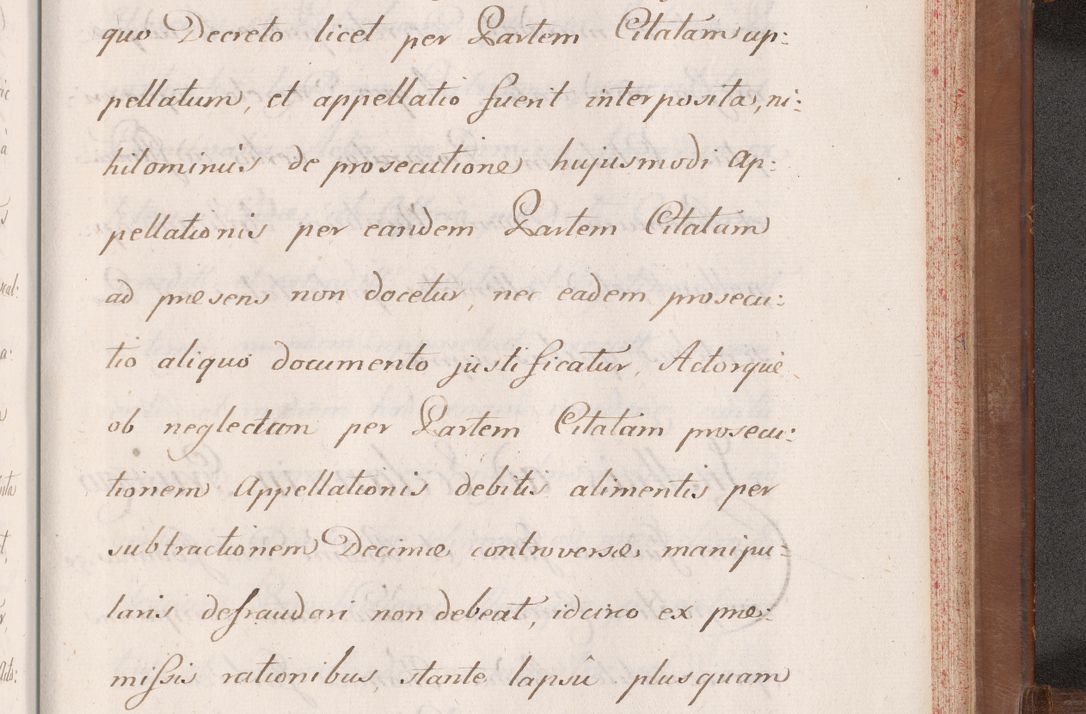 quo Decreto licet per Partem Citatam ap:
pellatum, et appellatio fuerit interposita, ni:
hilominus de prosecutione hujusmodi ap:
pellationis per eandem Partem Citatam
ad præsens non docetur, nec eadem prosecu:
tio aliquo documento justificatur, Actorque
ob neglectam per Partem Citatam prosecu:
tionem appellationis debitis alimentis per
subtractionem Decimæ controversæ manipu:
laris defraudari non debeat, idcirco ex præ:
mißis rationibus stante lapsû plusquam